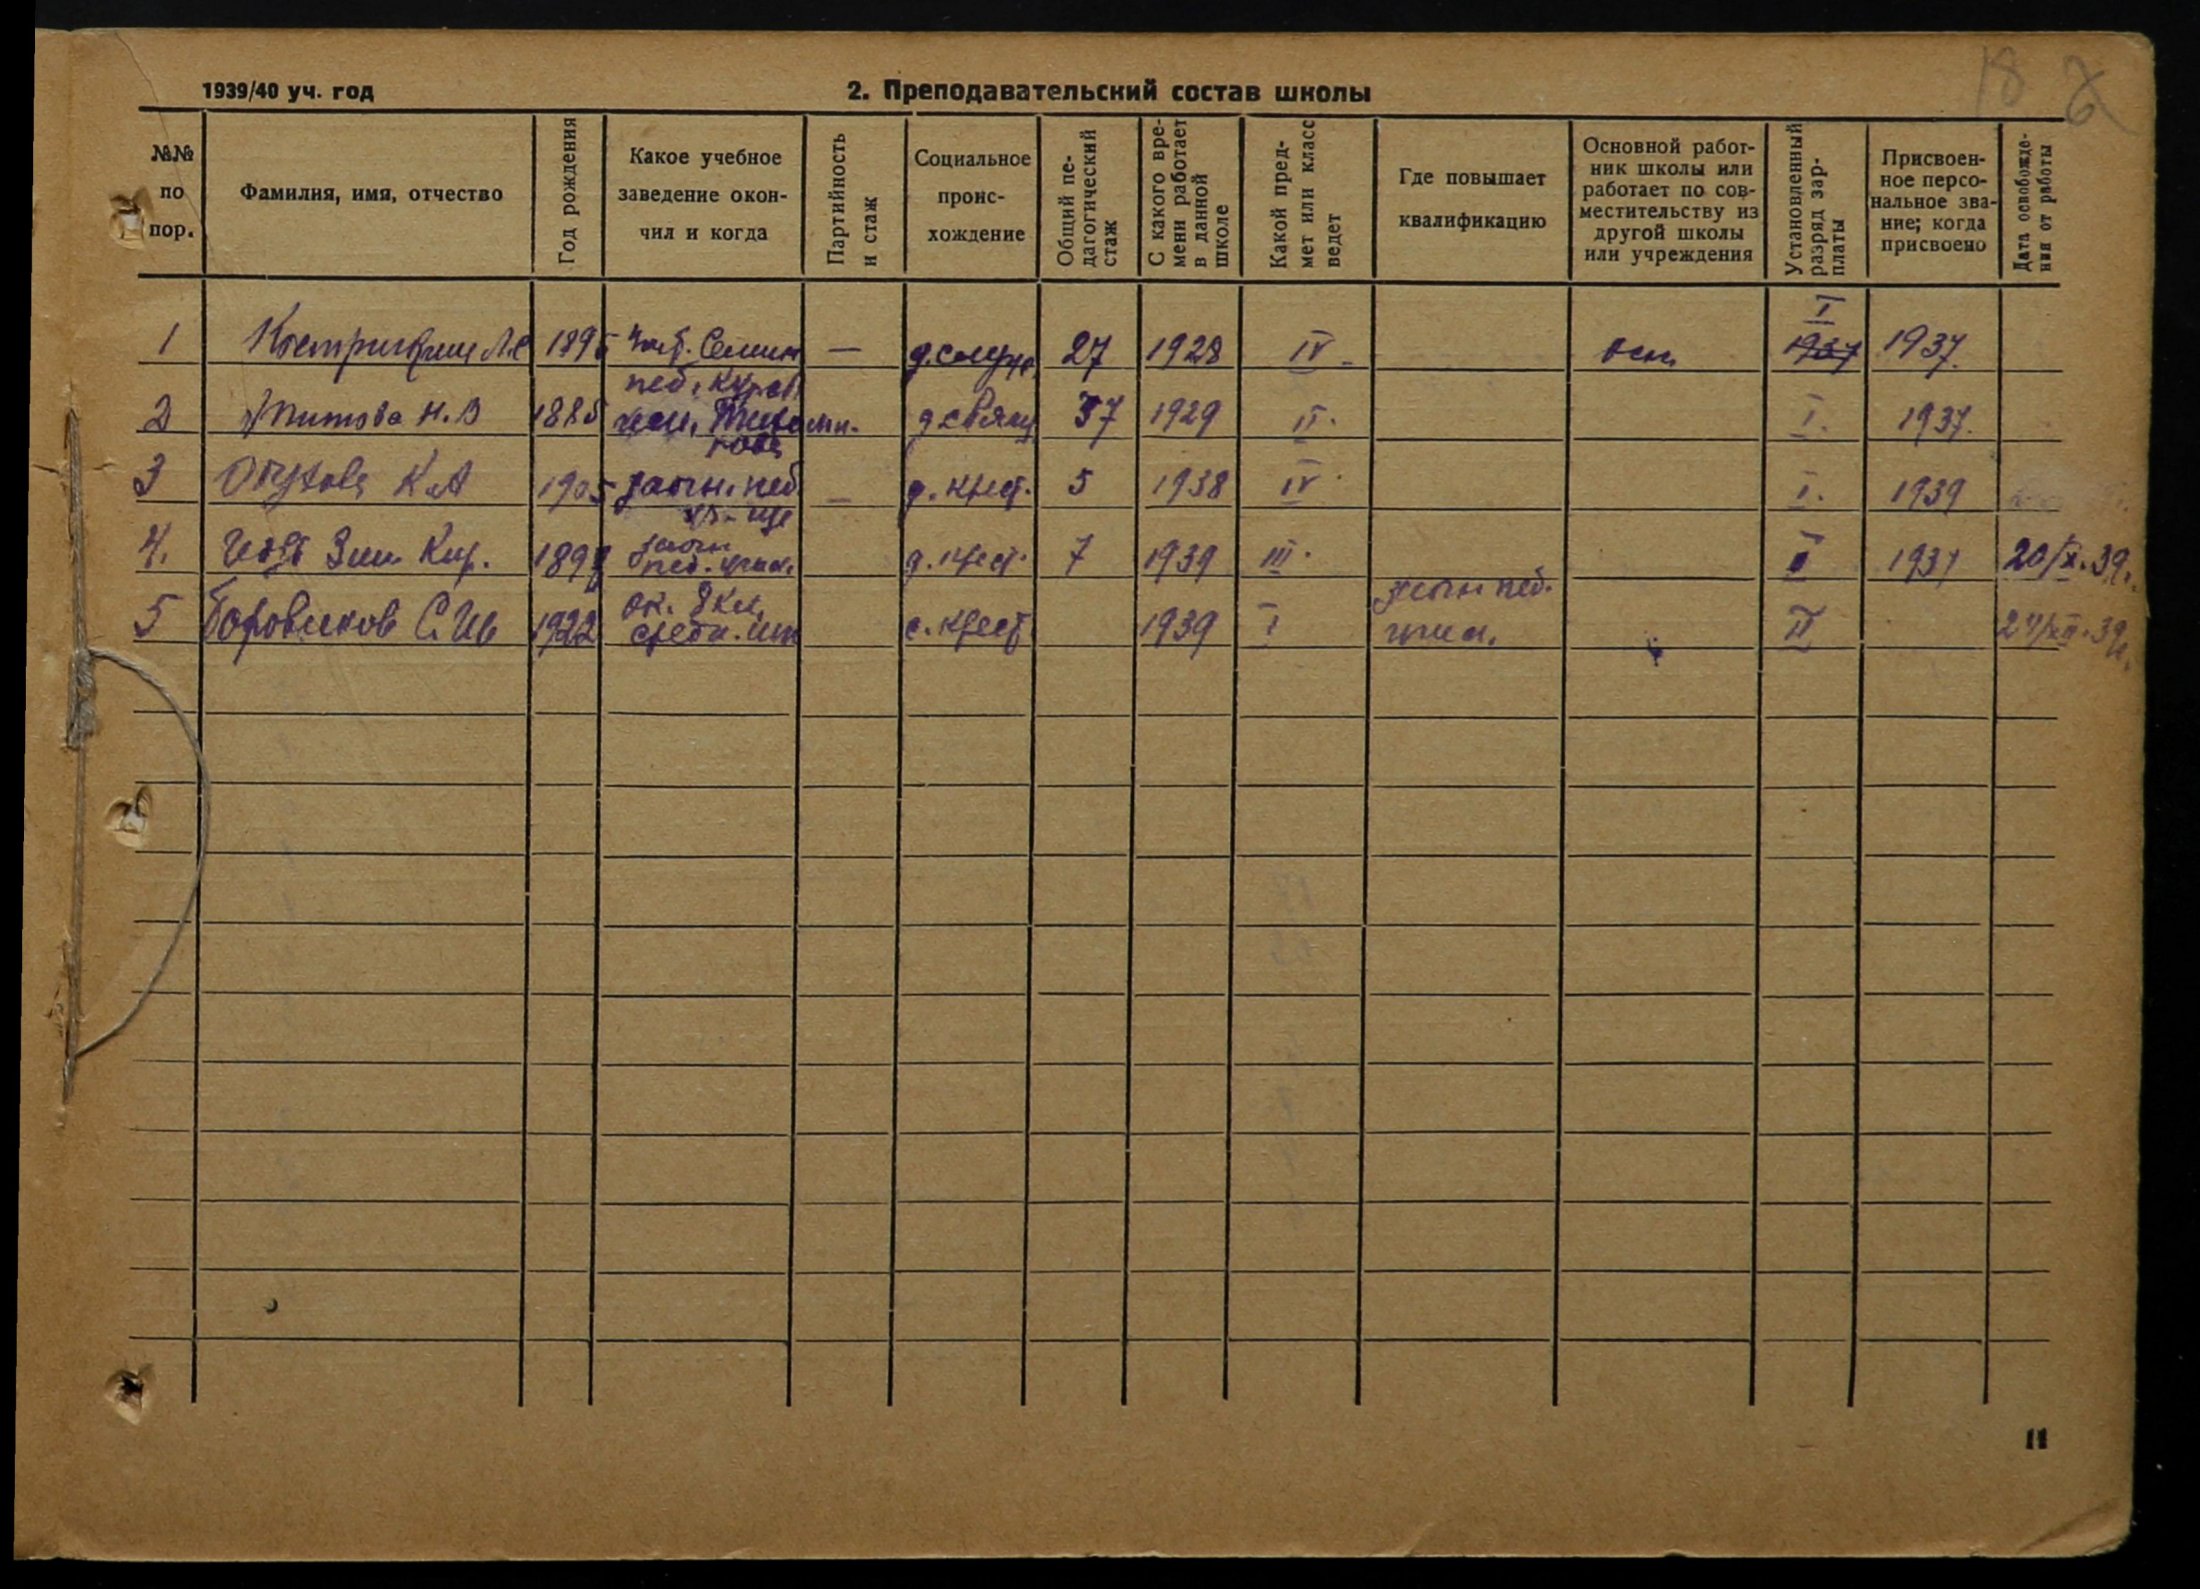 1939/40 уч. год
2. Преподавательский состав школы
18
№№ по пор.
Фамилия, имя, отчество
Год рождения
Какое учебное заведение окончил и когда
Партийность и стаж
Социальное происхождение
Общий педагогический стаж
С какого времени работает в данной школе
Какой предмет или класс ведет
Где повышает квалификацию
Основной работник школы или работает по совместительству из другой школы или учреждения
Установленный разряд зарплаты
Присвоенное персональное звание; когда присвоено
Дата освобождения от работы
1 Кострикин 1895 Семин — д. служ. 27 1928 IV осн. I 1937 1937.
2 Титова Н. В 1885 пед. курсы д. свящ 37 1929 II. I. 1937.
3 К А 1905 заочн. пед. уч-ще — д. крест. 5 1938 IV I. 1939
4. Зин. Кир. заочн пед. учил. д. крест. 7 1939 III. I 20/X.39г.
5 Боровиков С. Ив 1922 ок. 8 кл. средн. шк с. крест 1939 I заочн пед. учил. II 39г.
11